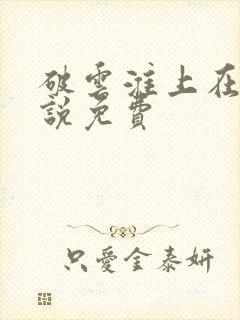 破雲淮上在
說免費
只愛金泰妍